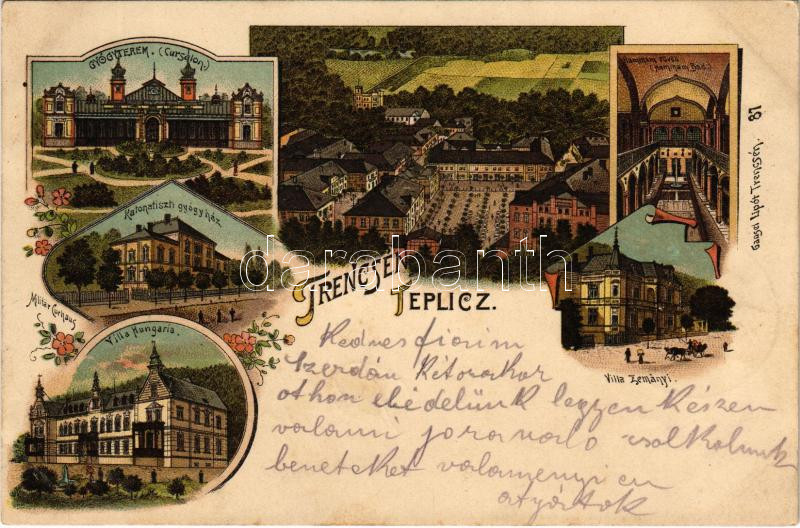 GYÓGYTEREM. (Cursalon)
Hammam Fürdő
(Hammam Bad.)
87
Gansel Lipót Trencsén.
Katonatiszti gyógyház
Militär Curhaus
darabanth
TRENCSÉN
TEPLICZ.
Villa Hungaria.
Villa Zemányi.
Kedves fiaim
Szerdán kétorakor
othon ebédelünk legyen készen
valami jora való csolkolunk
beneteket valamenyien
atyátok